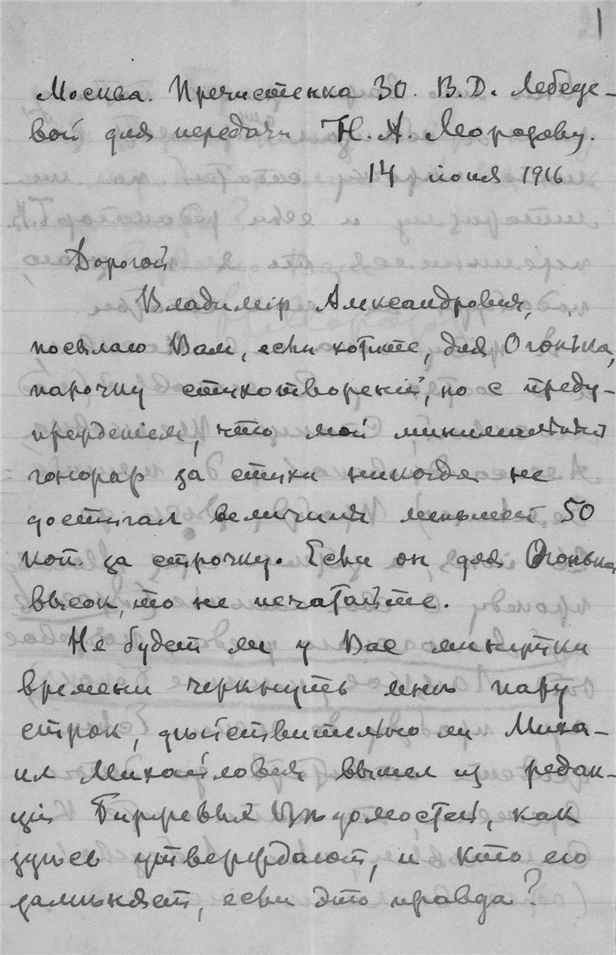 1
Москва. Пречистенка 30. В. Д. Лебеде-
вой для передачи Н. А. Морозову.
14 июня 1916
Дорогой
Владимір Александровичъ,
посылаю Вам, если хотите, для Огонька,
парочку стихотвореній, но с преду-
прежденіем, что мой минимальный
гонорар за стихи никогда не
достигал величины меньшей 50
коп за строчку. Если он для Огонька
высок, то не печатайте.
Не будет ли у Вас минутки
времени черкнуть мнѣ пару
строк, дѣйствительно ли Миха-
ил Михайлович вышел из редак-
ціи Биржевых Вѣдомостей, как
здѣсь утверждают, и кто его
замѣняет, если это правда?